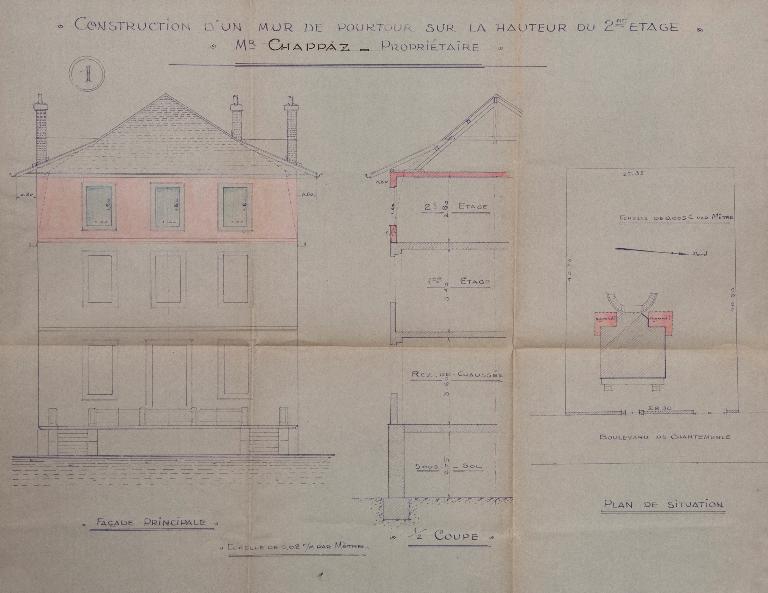 CONSTRUCTION D'UN MUR DE POURTOUR SUR LA HAUTEUR DU 2ME ETAGE
MR CHAPPAZ - PROPRIÉTAIRE
1
2E ETAGE
1ER ETAGE
REZ-DE-CHAUSSÉE
SOUS-SOL
FAÇADE PRINCIPALE
ECHELLE DE 0,02 C/M PAR MÈTRE
1/2 COUPE
ECHELLE DE 0,005 PAR MÈTRE
Nord
28.30
BOULEVARD DE CHANTEMERLE
PLAN DE SITUATION